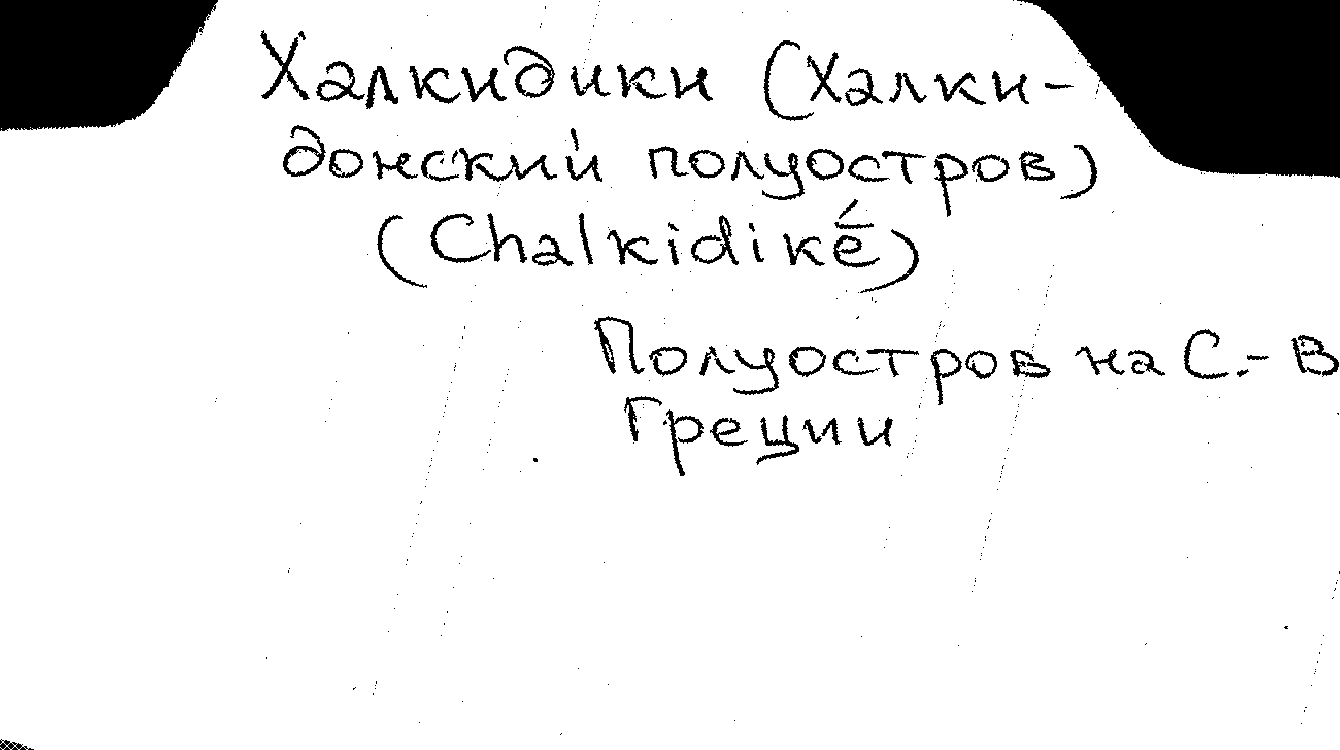 Халкидики (Халки-
донский полуостров)
(Chalkidikḗ)
Полуостров на С.-В
Греции